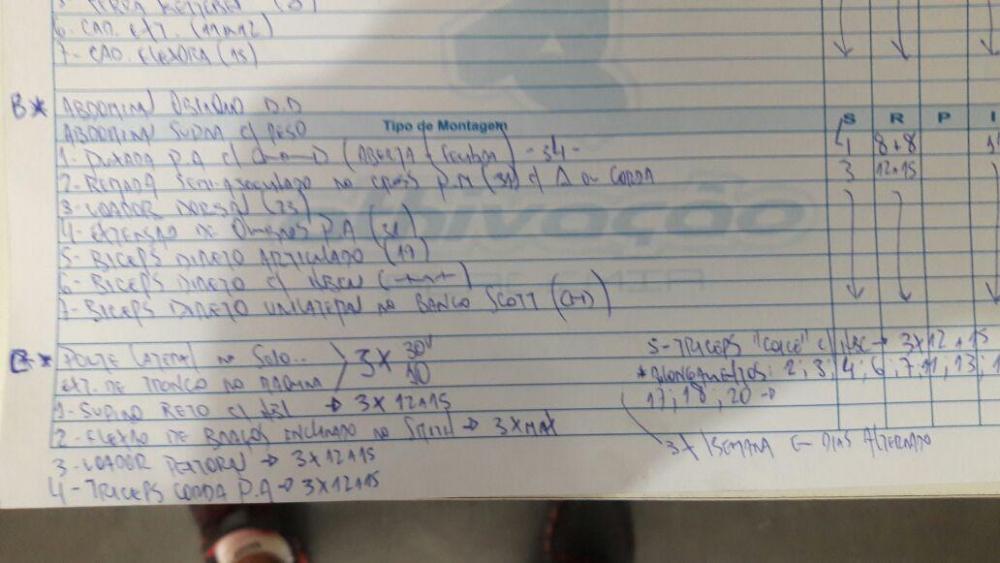 6- CAD. EXT. (11 ou 12)
7- CAD. FLEXORA (15)
B* ABDOMINAL OBLÍQUO D.D
ABDOMINAL SUPRA c/ PESO
Tipo de Montagem S R P I
1- PUXADA P.A c/ (ABERTA + FECHADA) -34- 4 8+8
2- REMADA SEMI-ACOCADO NO CROSS P.M (31) c/ Δ ou CORDA 3 12 a 15
3- VOADOR DORSAL (23)
4- EXTENSÃO DE OMBROS P.A (31)
5- BICEPS DIRETO ARTICULADO (19)
6- BICEPS DIRETO c/ HBC
7- BICEPS DIRETO UNILATERAL NO BANCO SCOTT
ativação
C* PONTE LATERAL NO SOLO.. 3X 30"
EXT. DE TRONCO NO 30
1- SUPINO RETO c/ → 3X12 a 15
2- FLEXÃO DE BRAÇOS INCLINADO NO SMITH → 3XMAX
3- VOADOR PEITORAL → 3X12 a 15
4- TRICEPS CORDA P.A → 3X12 a 15
5- TRICEPS "COICE" c/ HBC → 3X12 a 15
*ALONGAMENTOS: 2; 3; 4; 6; 7; 11; 13; 1
17; 18; 20 →
3X/SEMANA E DIAS ALTERNADO